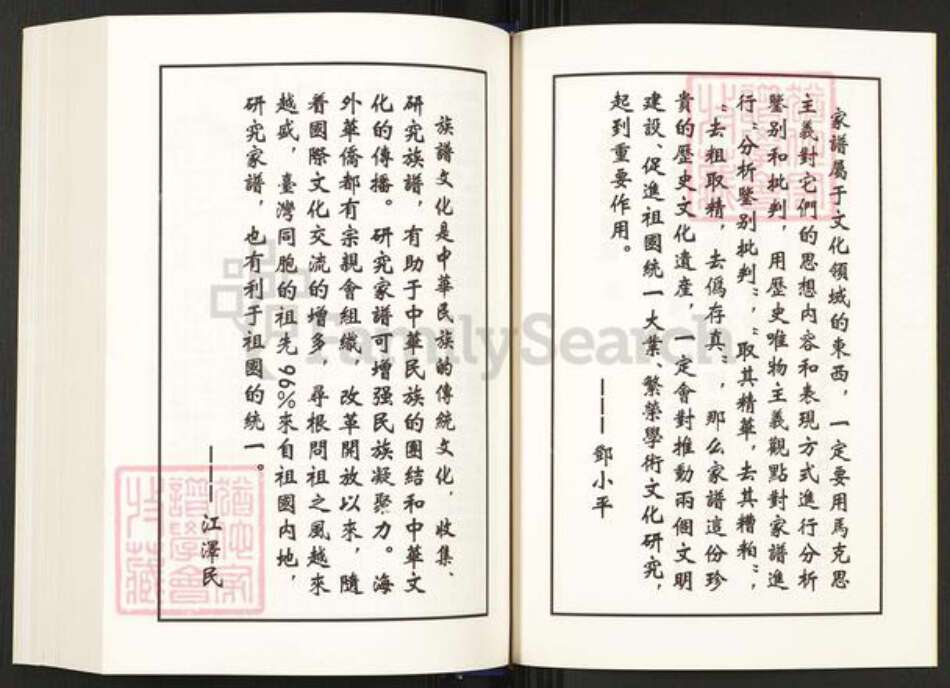 家譜屬于文化領域的東西，一定要用馬克思
主義對它們的思想内容和表現方式進行分析
鑒别和批判，用歷史唯物主義觀點對家譜進
行“分析鑒别批判”，“取其精華，去其糟粕”，
“去粗取精，去僞存真”，那么家譜這份珍
貴的歷史文化遺産，一定會對推動兩個文明
建設、促進祖國統一大業、繁榮學術文化研究，
起到重要作用。
———鄧小平
族譜文化是中華民族的傳統文化，收集、
研究族譜，有助于中華民族的團結和中華文
化的傳播。研究家譜可增强民族凝聚力。海
外華僑都有宗親會組織，改革開放以來，隨
着國際文化交流的增多，尋根問祖之風越來
越盛，臺灣同胞的祖先96%來自祖國内地，
研究家譜，也有利于祖國的統一。
———江澤民
FamilySearch